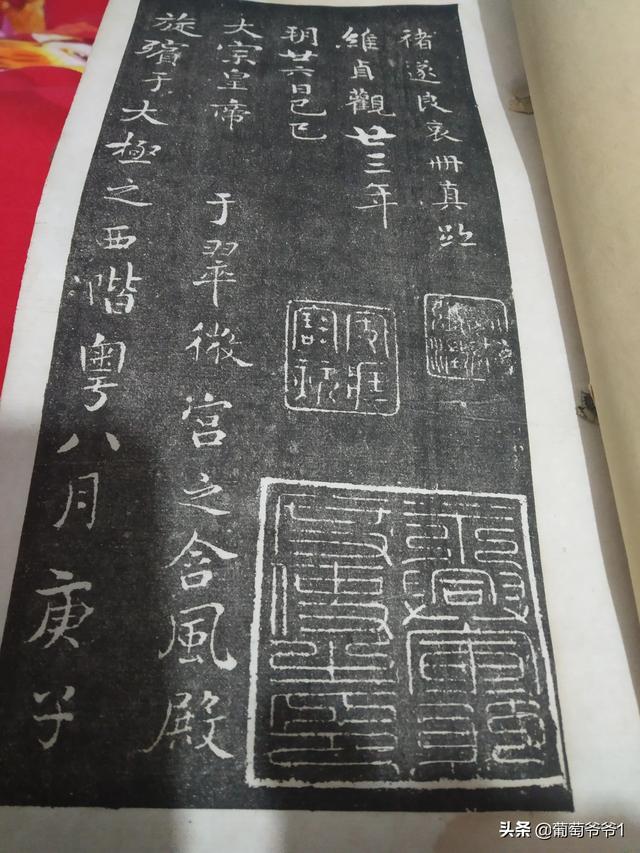 褚遂良哀册真跡
維貞觀廿三年
玥廿六日己巳
大宗皇帝 于翠微宮之含風殿
旋殯于大極之西階粵八月庚子
头条 @葡萄爷爷1